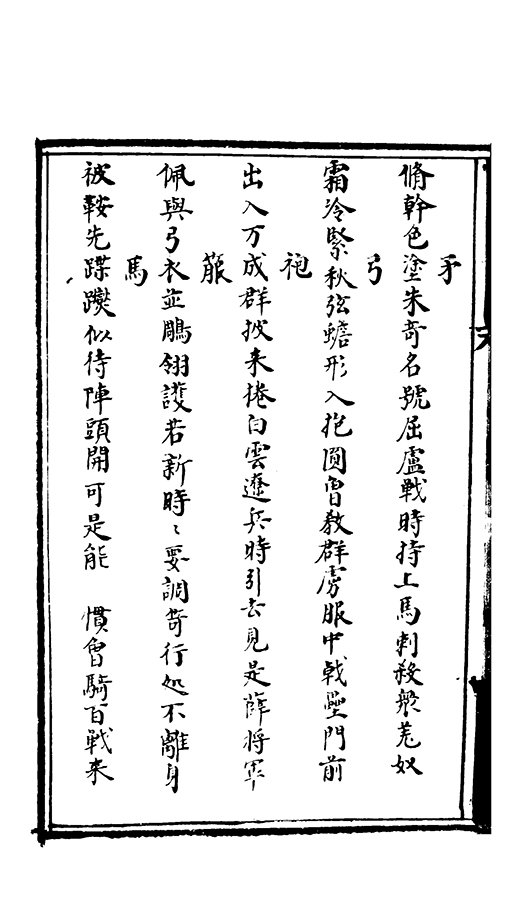 矛
脩幹色塗朱奇名號屈盧戰時持上馬刺殺衆羌奴
弓
霜冷緊秋弦蟾形入抱圓曾教群虜服中戟壘門前
袍
出入万成群披来捲白雲遼兵時引去見是薛将軍
箙
佩與弓衣並鵰翎護若新時〻要調箭行処不離身
馬
被鞍先蹀躞似待陣頭開可是能 慣曾騎百戰来